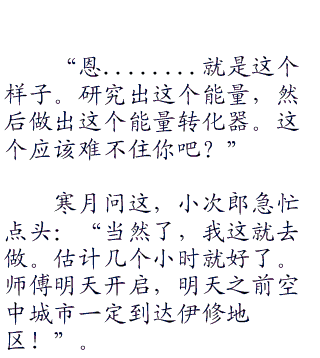 “恩........就是这个
样子。研究出这个能量，然
后做出这个能量转化器。这
个应该难不住你吧？”
寒月问这，小次郎急忙
点头：“当然了，我这就去
做。估计几个小时就好了。
师傅明天开启，明天之前空
中城市一定到达伊修地
区！”。